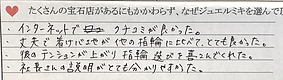 たくさんの宝石店があるにもかかわらず、なぜジュエルミキを選んで
・インターネットで クチコミが良かった。
・丈夫で着け心地が他の指輪に比べて、とても良かった。
・彼のテンションが上がり指輪 をよろこんでくれた。
・社長さんの説明がとても分かりやすかった。